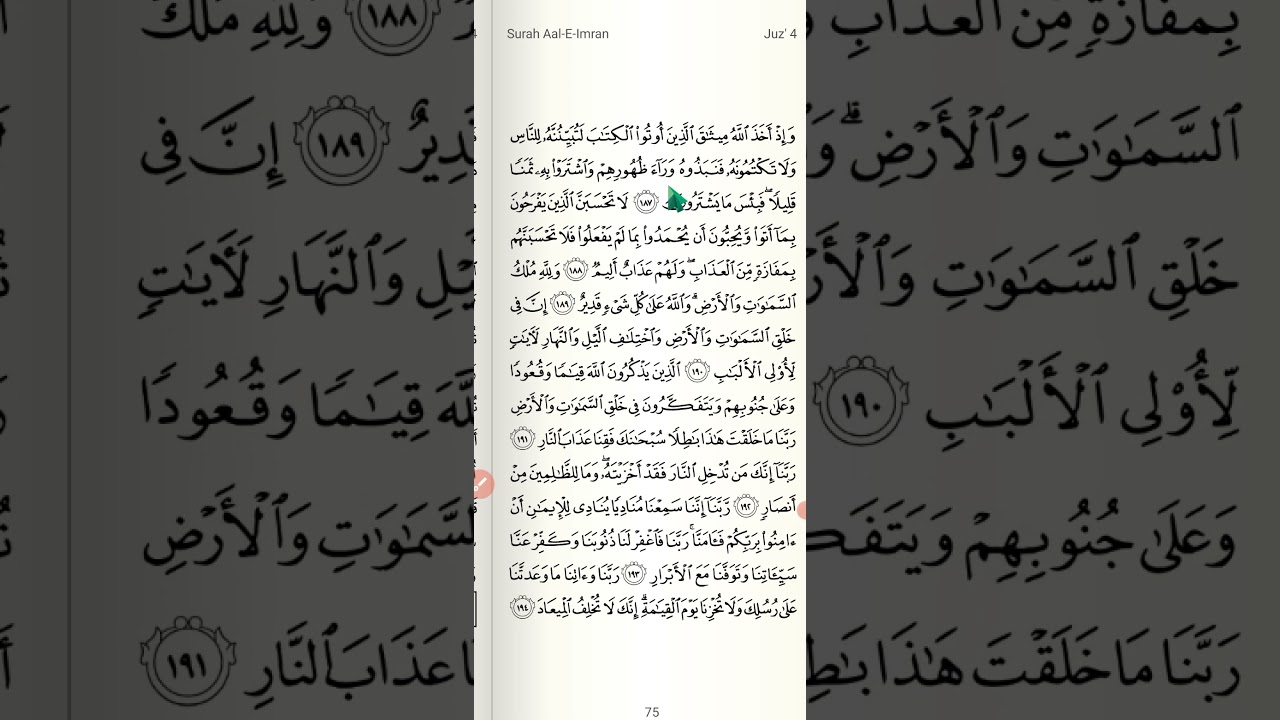 Surah Aal-E-Imran
Juz' 4
وَإِذْ أَخَذَ ٱللَّهُ مِيثَٰقَ ٱلَّذِينَ أُوتُوا۟ ٱلْكِتَٰبَ لَتُبَيِّنُنَّهُۥ لِلنَّاسِ
وَلَا تَكْتُمُونَهُۥ فَنَبَذُوهُ وَرَآءَ ظُهُورِهِمْ وَٱشْتَرَوْا۟ بِهِۦ ثَمَنًا
قَلِيلًا ۖ فَبِئْسَ مَا يَشْتَرُونَ ١٨٧ لَا تَحْسَبَنَّ ٱلَّذِينَ يَفْرَحُونَ
بِمَآ أَتَوا۟ وَّيُحِبُّونَ أَن يُحْمَدُوا۟ بِمَا لَمْ يَفْعَلُوا۟ فَلَا تَحْسَبَنَّهُم
بِمَفَازَةٍ مِّنَ ٱلْعَذَابِ ۖ وَلَهُمْ عَذَابٌ أَلِيمٌ ١٨٨ وَلِلَّهِ مُلْكُ
ٱلسَّمَٰوَٰتِ وَٱلْأَرْضِ ۗ وَٱللَّهُ عَلَىٰ كُلِّ شَىْءٍ قَدِيرٌ ١٨٩ إِنَّ فِى
خَلْقِ ٱلسَّمَٰوَٰتِ وَٱلْأَرْضِ وَٱخْتِلَٰفِ ٱلَّيْلِ وَٱلنَّهَارِ لَـَٔايَٰتٍ
لِّأُو۟لِى ٱلْأَلْبَٰبِ ١٩٠ ٱلَّذِينَ يَذْكُرُونَ ٱللَّهَ قِيَٰمًا وَقُعُودًا
وَعَلَىٰ جُنُوبِهِمْ وَيَتَفَكَّرُونَ فِى خَلْقِ ٱلسَّمَٰوَٰتِ وَٱلْأَرْضِ
رَبَّنَا مَا خَلَقْتَ هَٰذَا بَٰطِلًا سُبْحَٰنَكَ فَقِنَا عَذَابَ ٱلنَّارِ ١٩١
رَبَّنَآ إِنَّكَ مَن تُدْخِلِ ٱلنَّارَ فَقَدْ أَخْزَيْتَهُۥ ۖ وَمَا لِلظَّٰلِمِينَ مِنْ
أَنصَارٍ ١٩٢ رَّبَّنَآ إِنَّنَا سَمِعْنَا مُنَادِيًا يُنَادِى لِلْإِيمَٰنِ أَنْ
ءَامِنُوا۟ بِرَبِّكُمْ فَـَٔامَنَّا ۚ رَبَّنَا فَٱغْفِرْ لَنَا ذُنُوبَنَا وَكَفِّرْ عَنَّا
سَيِّـَٔاتِنَا وَتَوَفَّنَا مَعَ ٱلْأَبْرَارِ ١٩٣ رَبَّنَا وَءَاتِنَا مَا وَعَدتَّنَا
عَلَىٰ رُسُلِكَ وَلَا تُخْزِنَا يَوْمَ ٱلْقِيَٰمَةِ ۗ إِنَّكَ لَا تُخْلِفُ ٱلْمِيعَادَ ١٩٤
75